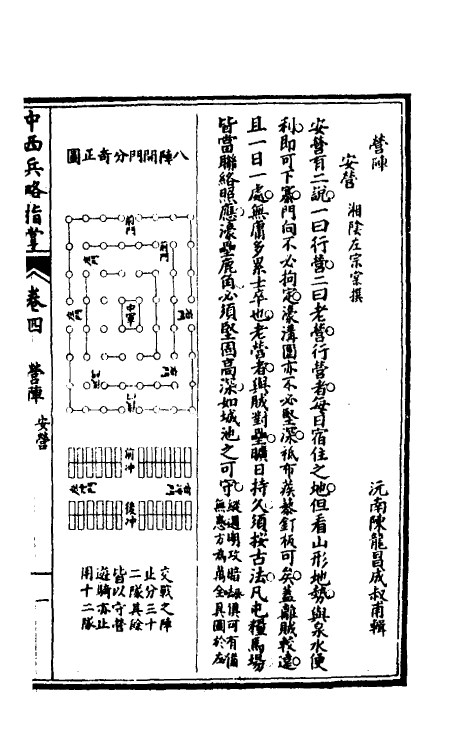 營陣
沅南陳龍昌成叔甫輯
安營 湘陰左宗棠撰
安營有二說一曰行營二曰老營行營者每日宿住之地但看山形地勢與泉水便
利即可下寨門向不必拘定濠溝圍亦不必堅深祇布蒺藜釘板可矣蓋離賊較遠
且一日一處無庸多累士卒也老營者與賊對壘曠日持久須按古法凡屯糧馬場
皆當聯絡照應濠壘鹿角必須堅固高深如城池之可守縱遇明攻暗劫俱可有備
無患方為萬全具圖於左
八陣開門分奇正圖
前門
中軍
前冲
後冲
交戰之陣
止分三十
二隊其餘
皆以守營
遊騎亦止
用十二隊
中西兵略指掌
卷四
營陣
安營
一